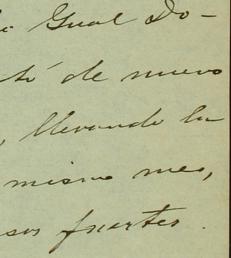 Gual Do-
só de nuevo
, llevando la
mismo mes,
sos fuertes.